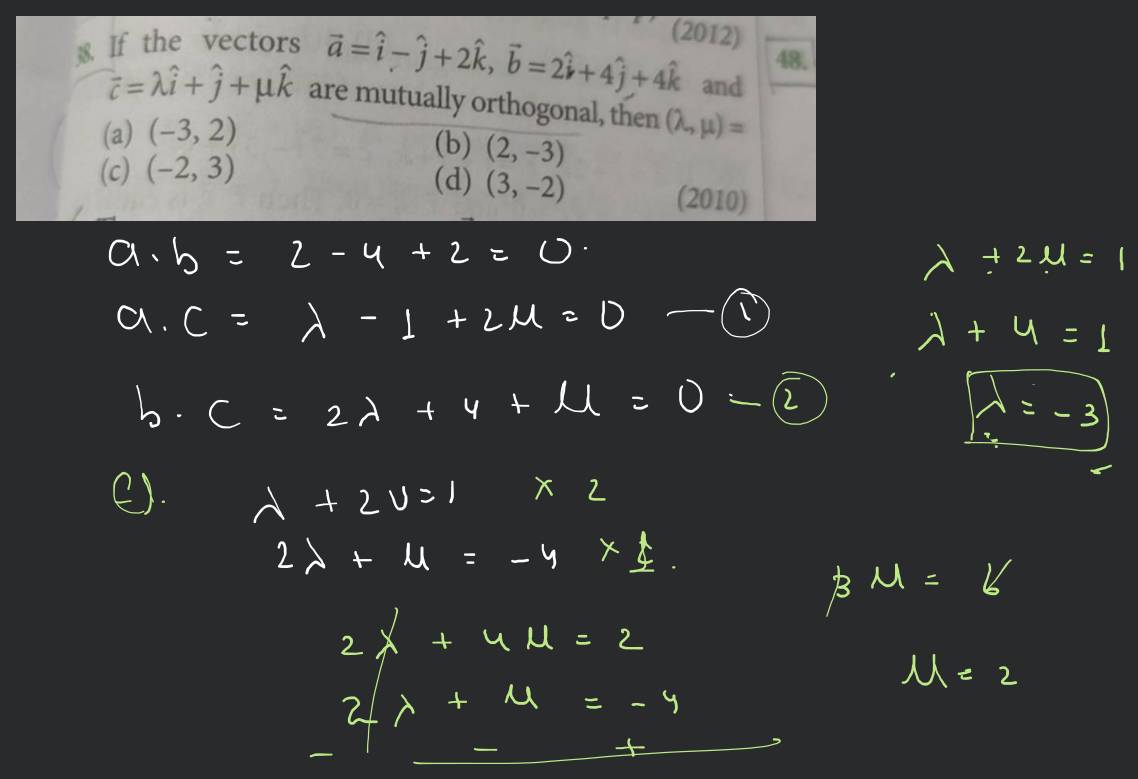 (2012)
8. If the vectors a⃗ = î − ĵ + 2k̂, b⃗ = 2î + 4ĵ + 4k̂ and
48.
c⃗ = λî + ĵ + μk̂ are mutually orthogonal, then (λ, μ) =
(a) (−3, 2) (b) (2, −3)
(c) (−2, 3) (d) (3, −2)
(2010)
a.b = 2 - 4 + 2 = 0.
a.c = λ - 1 + 2μ = 0 — ①
b.c = 2λ + 4 + μ = 0 — ②
λ + 2μ = 1 × 2
2λ + μ = -4 × 1.
2λ + 4μ = 2
2λ + μ = -4
- - +
λ + 2μ = 1
λ + 4 = 1
λ = -3
3μ = 6
μ = 2